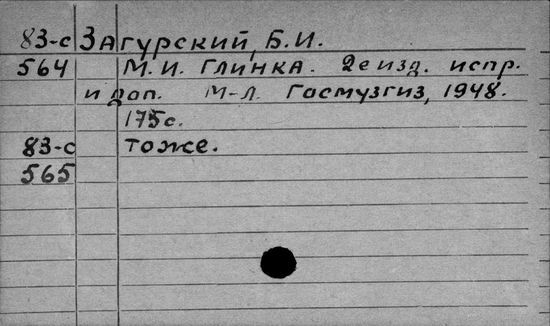 83-с Загурский, Б.И.
564 М.И. Глинка. 2е изд. испр.
и доп. М-Л. Госмузгиз, 1948.
175с.
83-с тоже.
565